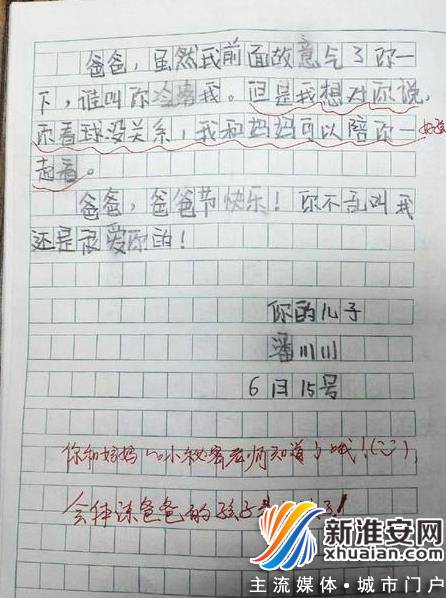 爸爸，虽然我前面故意气了你一
下，谁叫你冷落我。但是我想对你说，
你看球没关系，我和妈妈可以陪你一
起看。
爸爸，爸爸节快乐！你不乱叫我
还是 爱你的！
你的儿子
潘川川
6月15号
你和妈妈的小秘密老师知道了哦！
会体谅爸爸的孩子
新淮安网
xhuaian.com
主流媒体·城市门户